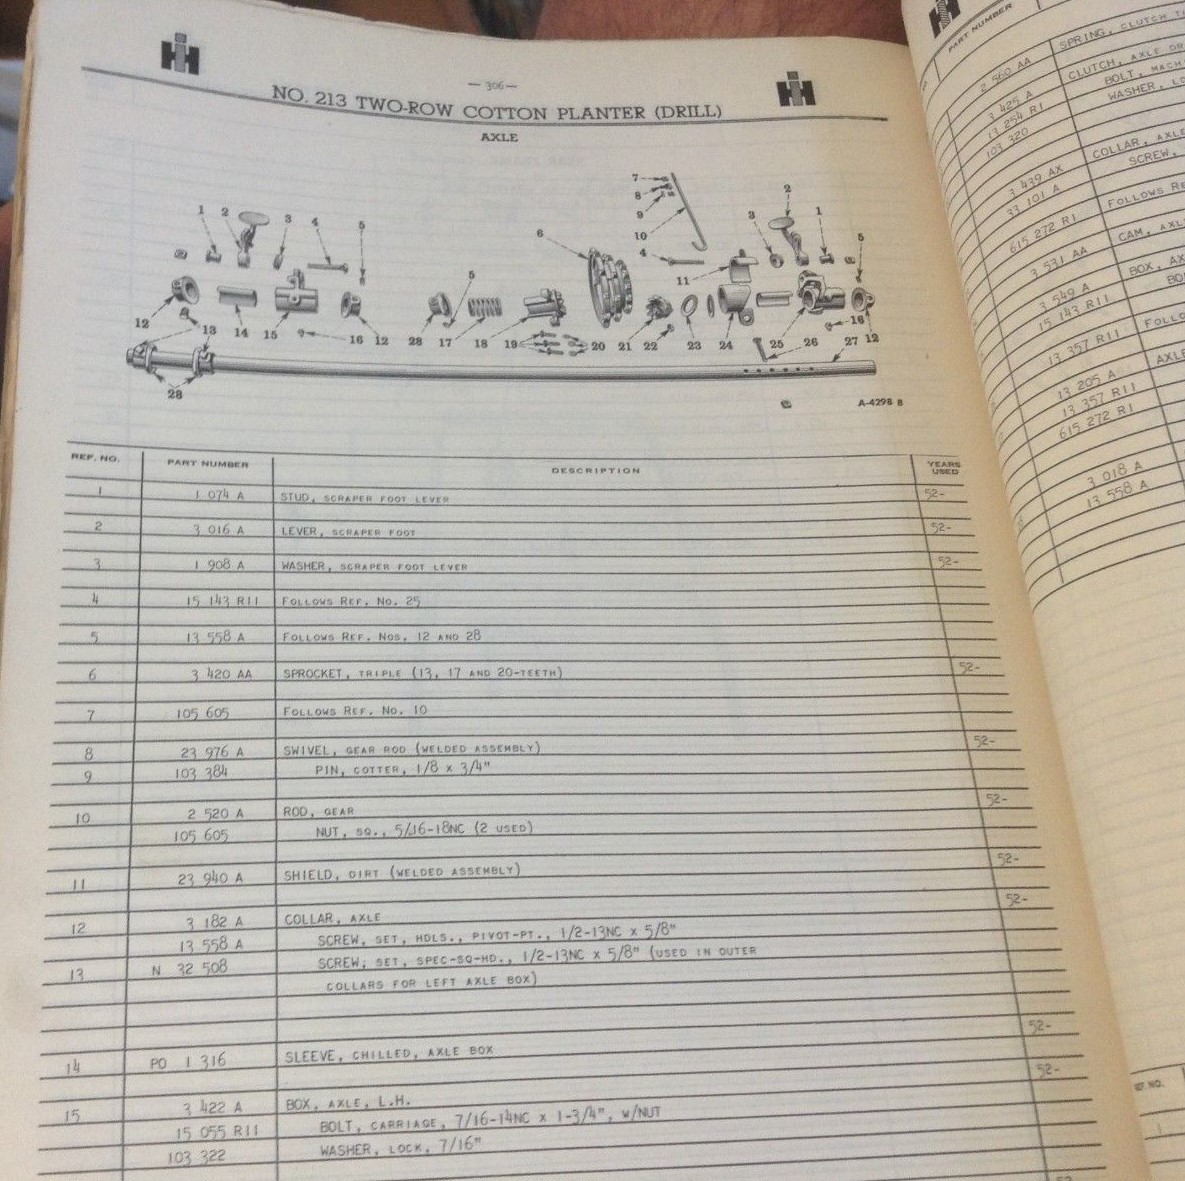 — 306 —
NO. 213 TWO-ROW COTTON PLANTER (DRILL)
AXLE
7
8
9
10
2
1 2 3 4 5
3 1
6 4 5
11
5
12 13 14 15 16 12 28 17 18 19 20 21 22 23 24 25 26 16 12
27
28
A-4298 B
REF. NO. PART NUMBER DESCRIPTION YEARS USED
1 1 074 A STUD, SCRAPER FOOT LEVER 52-
2 3 016 A LEVER, SCRAPER FOOT 52-
3 1 908 A WASHER, SCRAPER FOOT LEVER 52-
4 15 143 R11 FOLLOWS REF. NO. 25
5 13 558 A FOLLOWS REF. NOS. 12 AND 28
6 3 420 AA SPROCKET, TRIPLE (13, 17 AND 20-TEETH) 52-
7 105 605 FOLLOWS REF. NO. 10
8 23 976 A SWIVEL, GEAR ROD (WELDED ASSEMBLY) 52-
9 103 384 PIN, COTTER, 1/8 X 3/4"
10 2 520 A ROD, GEAR 52-
105 605 NUT, SQ., 5/16-18NC (2 USED)
11 23 940 A SHIELD, DIRT (WELDED ASSEMBLY) 52-
12 3 182 A COLLAR, AXLE 52-
13 558 A SCREW, SET, HDLS., PIVOT-PT., 1/2-13NC X 5/8"
13 N 32 508 SCREW, SET, SPEC-SQ-HD., 1/2-13NC X 5/8" (USED IN OUTER
COLLARS FOR LEFT AXLE BOX)
14 PO 1 316 SLEEVE, CHILLED, AXLE BOX 52-
15 3 422 A BOX, AXLE, L.H. 52-
15 055 R11 BOLT, CARRIAGE, 7/16-14NC X 1-3/4", W/NUT
103 322 WASHER, LOCK, 7/16"
PART NUMBER
2 560 AA SPRING, CLUTCH
3 425 A CLUTCH, AXLE
13 254 R1 BOLT, MACH
103 320 WASHER,
3 439 AX COLLAR, AXLE
33 101 A SCREW,
615 272 R1 FOLLOWS
3 531 AA CAM,
3 549 A BOX,
15 143 R11
13 357 R11
13 205 A
13 357 R11
615 272 R1
3 018 A
13 558 A
REF. NO.
1